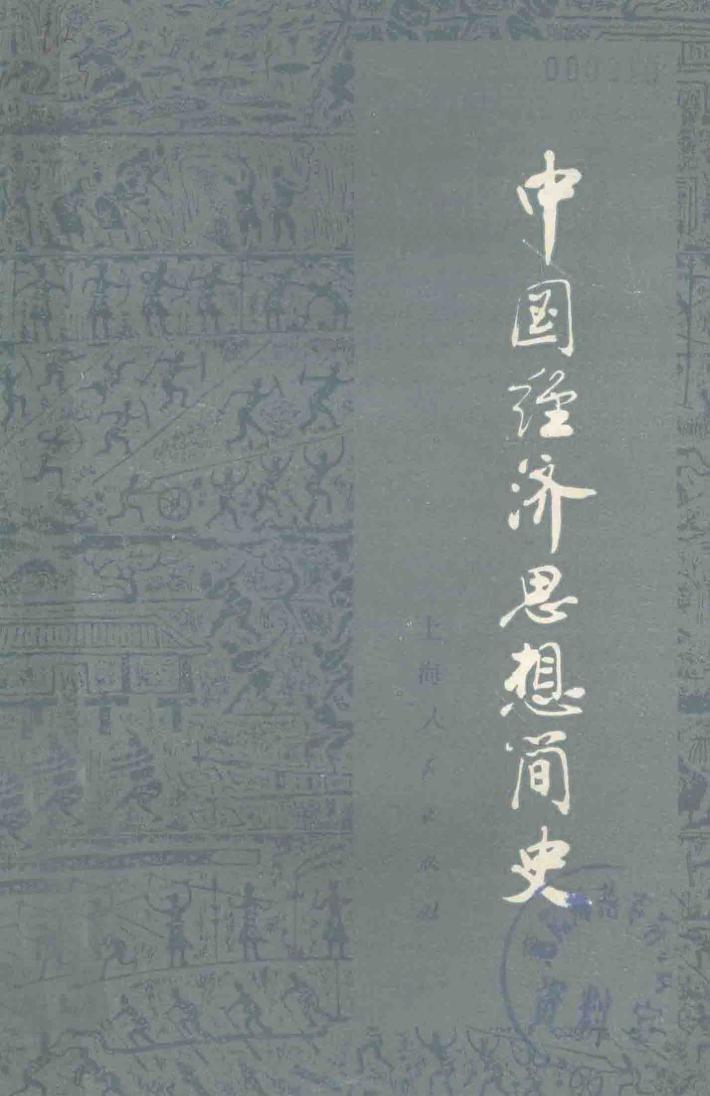 中国经济思想简史
上海人民出版社
资料